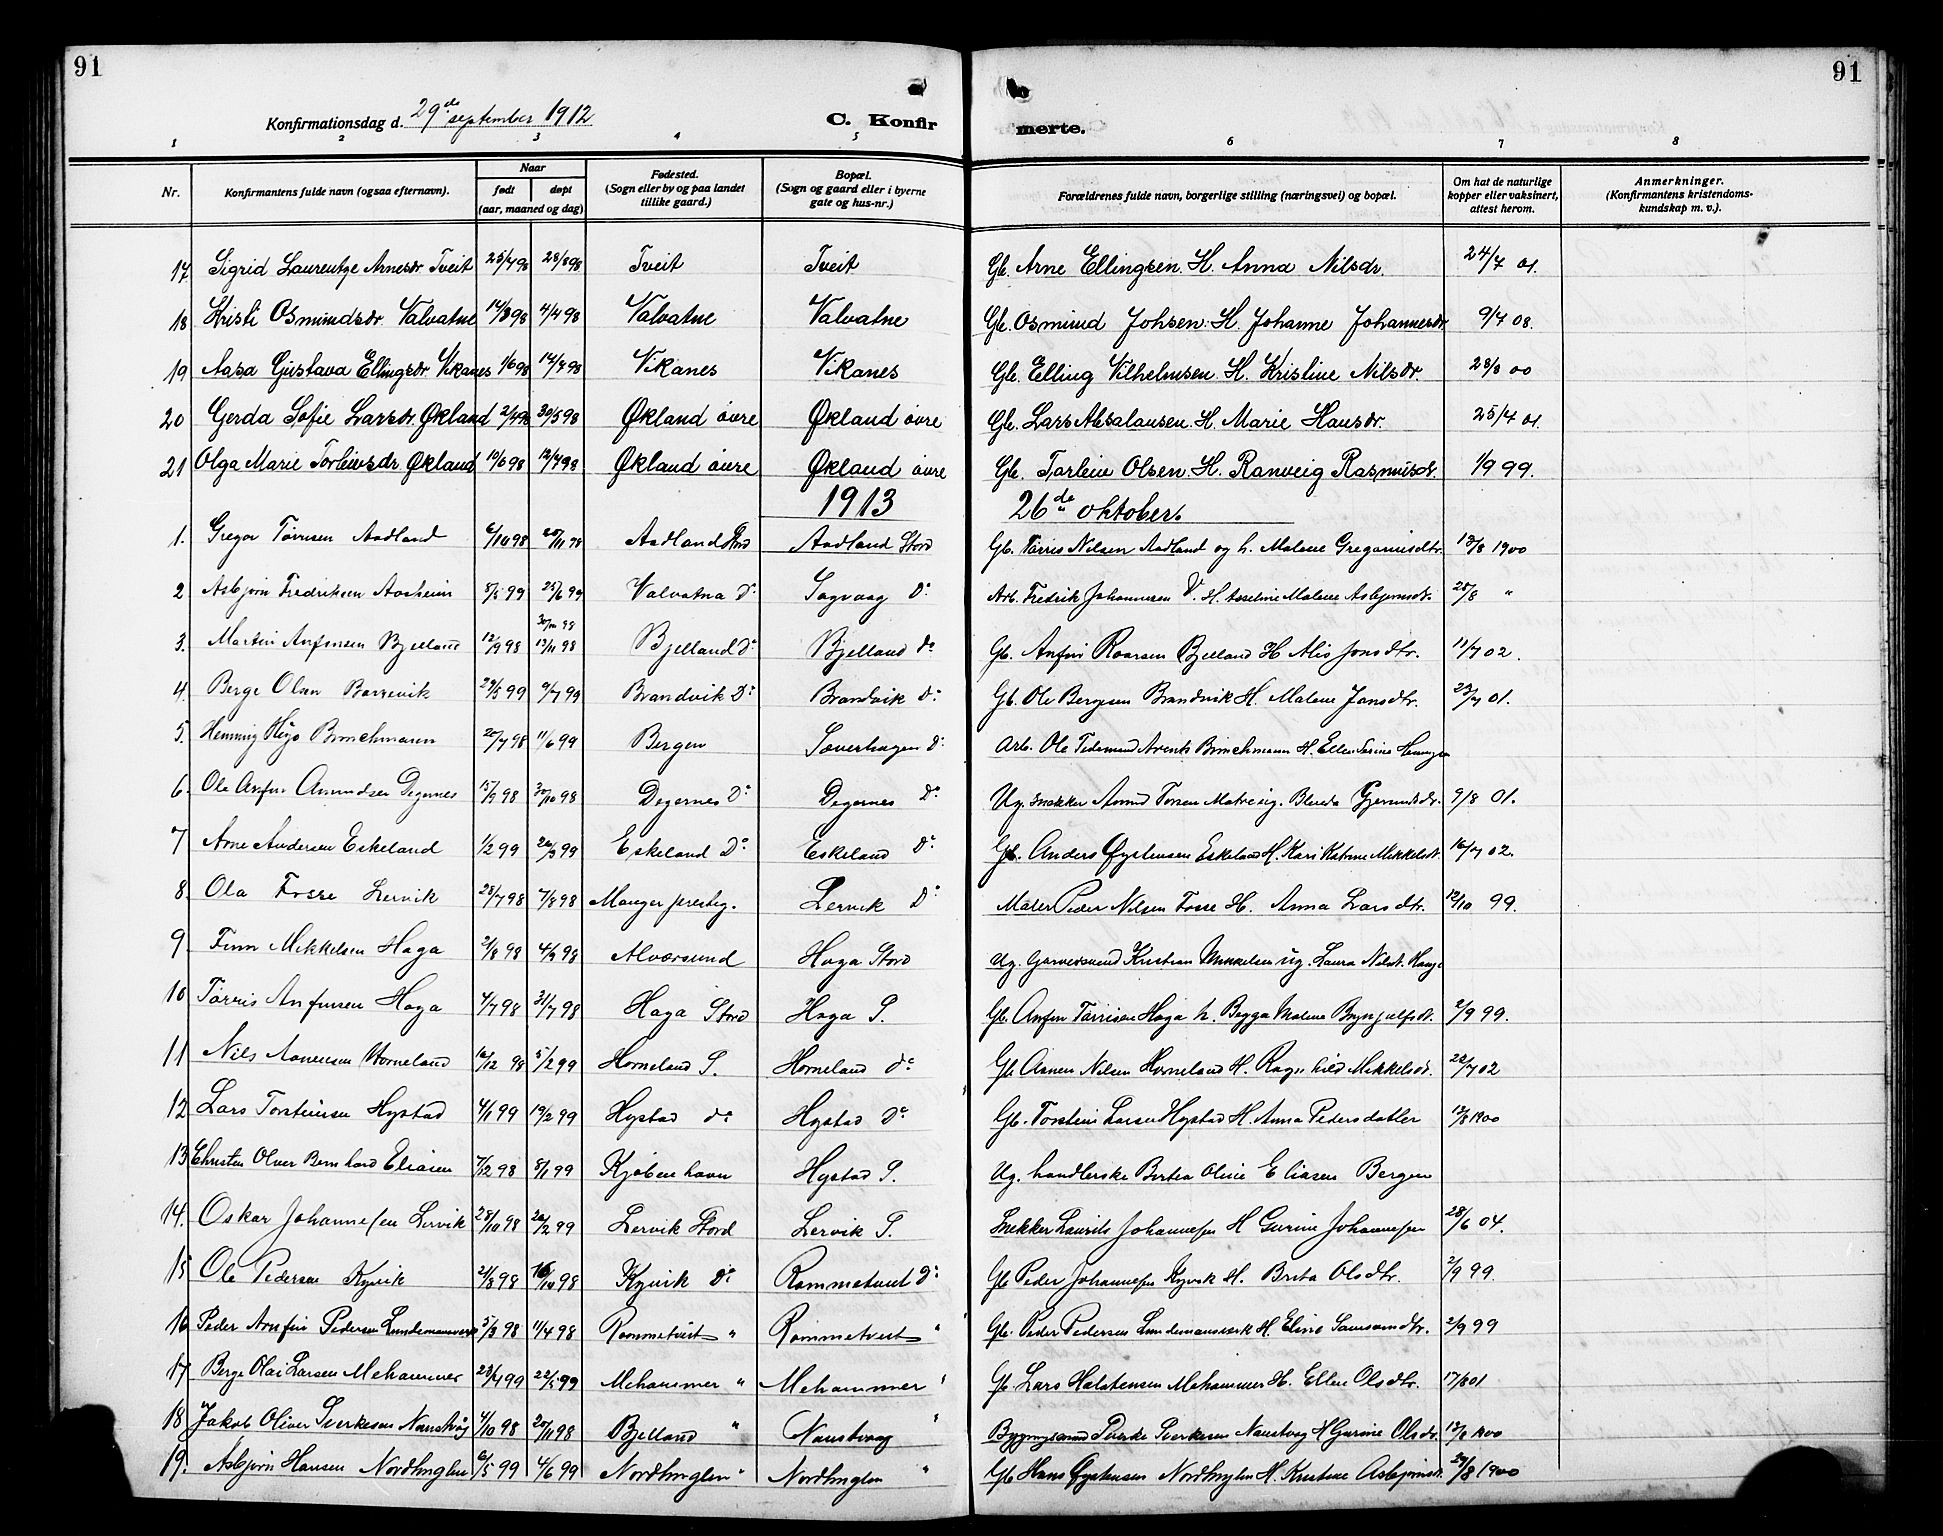 91 91
Konfirmationsdag d. 29de september 1912 C. Konfir merte.
1 2 3 4 5 6 7 8
Nr. Konfirmantens fulde navn (ogsaa efternavn). Naar født døpt (aar, maaned og dag) Fødested. (Sogn eller by og paa landet tillike gaard.) Bopæl. (Sogn og gaard eller i byerne gate og hus-nr.) Forældrenes fulde navn, borgerlige stilling (næringsvei) og bopæl. Om hat de naturlige kopper eller vaksinert, attest herom. Anmerkninger. (Konfirmantens kristendomskundskap m. v.).
17 Sigrid Laurentze Arnesdr. Tveit 25/4 98 28/8 98 Tveit Tveit Gb. Arne Ellingsen. H. Anna Nilsdr. 24/7 01.
18 Kristi Osmundsdr. Valvatne 14/3 98 4/4 98 Valvatne Valvatne Gb. Osmund Johsen. H. Johanne Johannesdr 9/7 08.
19 Aasa Gustava Ellingsdr. Vikanes 1/6 98 17/7 98 Vikanes Vikanes Gb. Elling Vilhelmsen. H. Kristine Nilsdr. 28/8 00
20 Gerda Sofie Larsdr. Økland 2/4 98 30/5 98 Økland övre Økland övre Gb. Lars Absalonsen. H. Marie Hansdr. 25/7 01.
21 Olga Marie Torleivsdr Økland 10/6 98 12/7 98 Økland övre Økland övre Gb. Torleiv Olsen. H. Ranveig Rasmusdr. 1/9 99.
1913 26de oktober.
1. Gregor Tørrisen Aadland 6/10 98 20/11 98 Aadland Stord Aadland Stord Gb. Tørris Nilsen Aadland og h. Malene Gregoriusdtr. 13/8 1900
2 Asbjørn Fredriksen Aasheim 8/5 99 25/6 99 Valvatna Do Sagvaag Do Arb. Fredrik Johannesen V. H. Asseline Malene Asbjørnsdtr. 28/8 "
3. Martin Anfinsen Bjelland 12/9 98 30/10 98 13/11 98 Bjelland Do Bjelland Do Gb. Anfin Roarsen Bjelland H Alis Jonsdtr. 11/7 02.
4. Berge Olsen Borrevik 29/5 99 9/7 99 Brandvik Do Brandvik Do Gb. Ole Bergesen Brandvik H. Malene Jansdtr. 23/7 01.
5. Henning Hugo Brinchmann 20/7 98 11/6 99 Bergen Sæverhagen Do Arb. Ole Tidemand Arentz Brinchmann H. Ellen Henningsen
6. Ole Anfin Amundsen Degernes 15/9 98 30/10 98 Degernes Do Degernes Do Ug. snekker Amund Matre ug. Gjermundsdtr. 9/8 01.
7 Arne Andersen Eskeland 1/2 99 26/3 99 Eskeland Do Eskeland Do Gb. Anders Øystensen Eskeland H. Kari Katrine Mikkelsdt. 16/7 02.
8. Ola Fosse Lervik 28/7 98 7/8 98 Manger presteg. Lervik Do Maler Peder Nilsen Fosse H. Anna Larsdtr. 12/10 99.
9 Finn Mikkelsen Haga 2/8 98 4/9 98 Alværsund Haga Stord Ug. Garversvend Kristian Mikkelsen ug. Laura Nilsdt. Hauge
10 Tørris Anfinsen Haga 4/7 98 31/7 98 Haga Stord Haga S. Gb. Anfin Tørrisen Haga h. Brynjulfsdt. 2/9 99.
11 Nils Aanensen Horneland 16/12 98 5/2 99 Horneland S. Horneland do Gb Aanen Nilsen Horneland H. Ragnhild Mikkelsdt. 28/7 02
12 Lars Torsteinsen Hystad 4/1 99 19/2 99 Hystad do Hystad Do Gb. Torstein Larsen Hystad H. Anna Pedersdatter 13/8 1900
13 Christen Oliver Bernhard Eliasen 7/12 98 8/1 99 Kjøbenhavn Hystad S. Ug. handlerske Bertea Oline Eliasen Bergen
14. Oskar Johannesen Lervik 28/10 98 26/2 99 Lervik Stord Lervik S. Snekker Laurits Johannesen H Gurine Johannesen 28/6 04.
15 Ole Pedersen Kyvik 21/8 98 16/10 98 Kyvik Do Rommetveit Do Gb Peder Johannesen Kyvik H. Brita Olsdtr. 2/9 99.
16 Peder Arnfin Pedersen Lundemansverk 5/3 98 11/4 98 Rommetveit " Rommetveit " Gb. Peder Pedersen Lundemansverk H. Eline Samsondtr. 2/9 99
17 Berge Olai Larsen Mehammer 23/4 99 22/5 99 Mehammer " Mehammer " Gb. Lars Halstensen Mehammer H. Ellen Olsdtr. 17/8 01
18 Jakob Oliver Sverkesen Naustvåg 4/10 98 20/11 98 Bjelland " Naustvaag " Bygningsmand Sverke Sverkesen Naustvog H Gurine Olsdtr. 13/8 1900
19. Asbjørn Hansen Nordhuglen 6/5 99 4/6 99 Nordhuglen " Nordhuglen " Gb Hans Øystensen Nordhuglen H. Kristine Asbjørnsdt. 29/8 1900